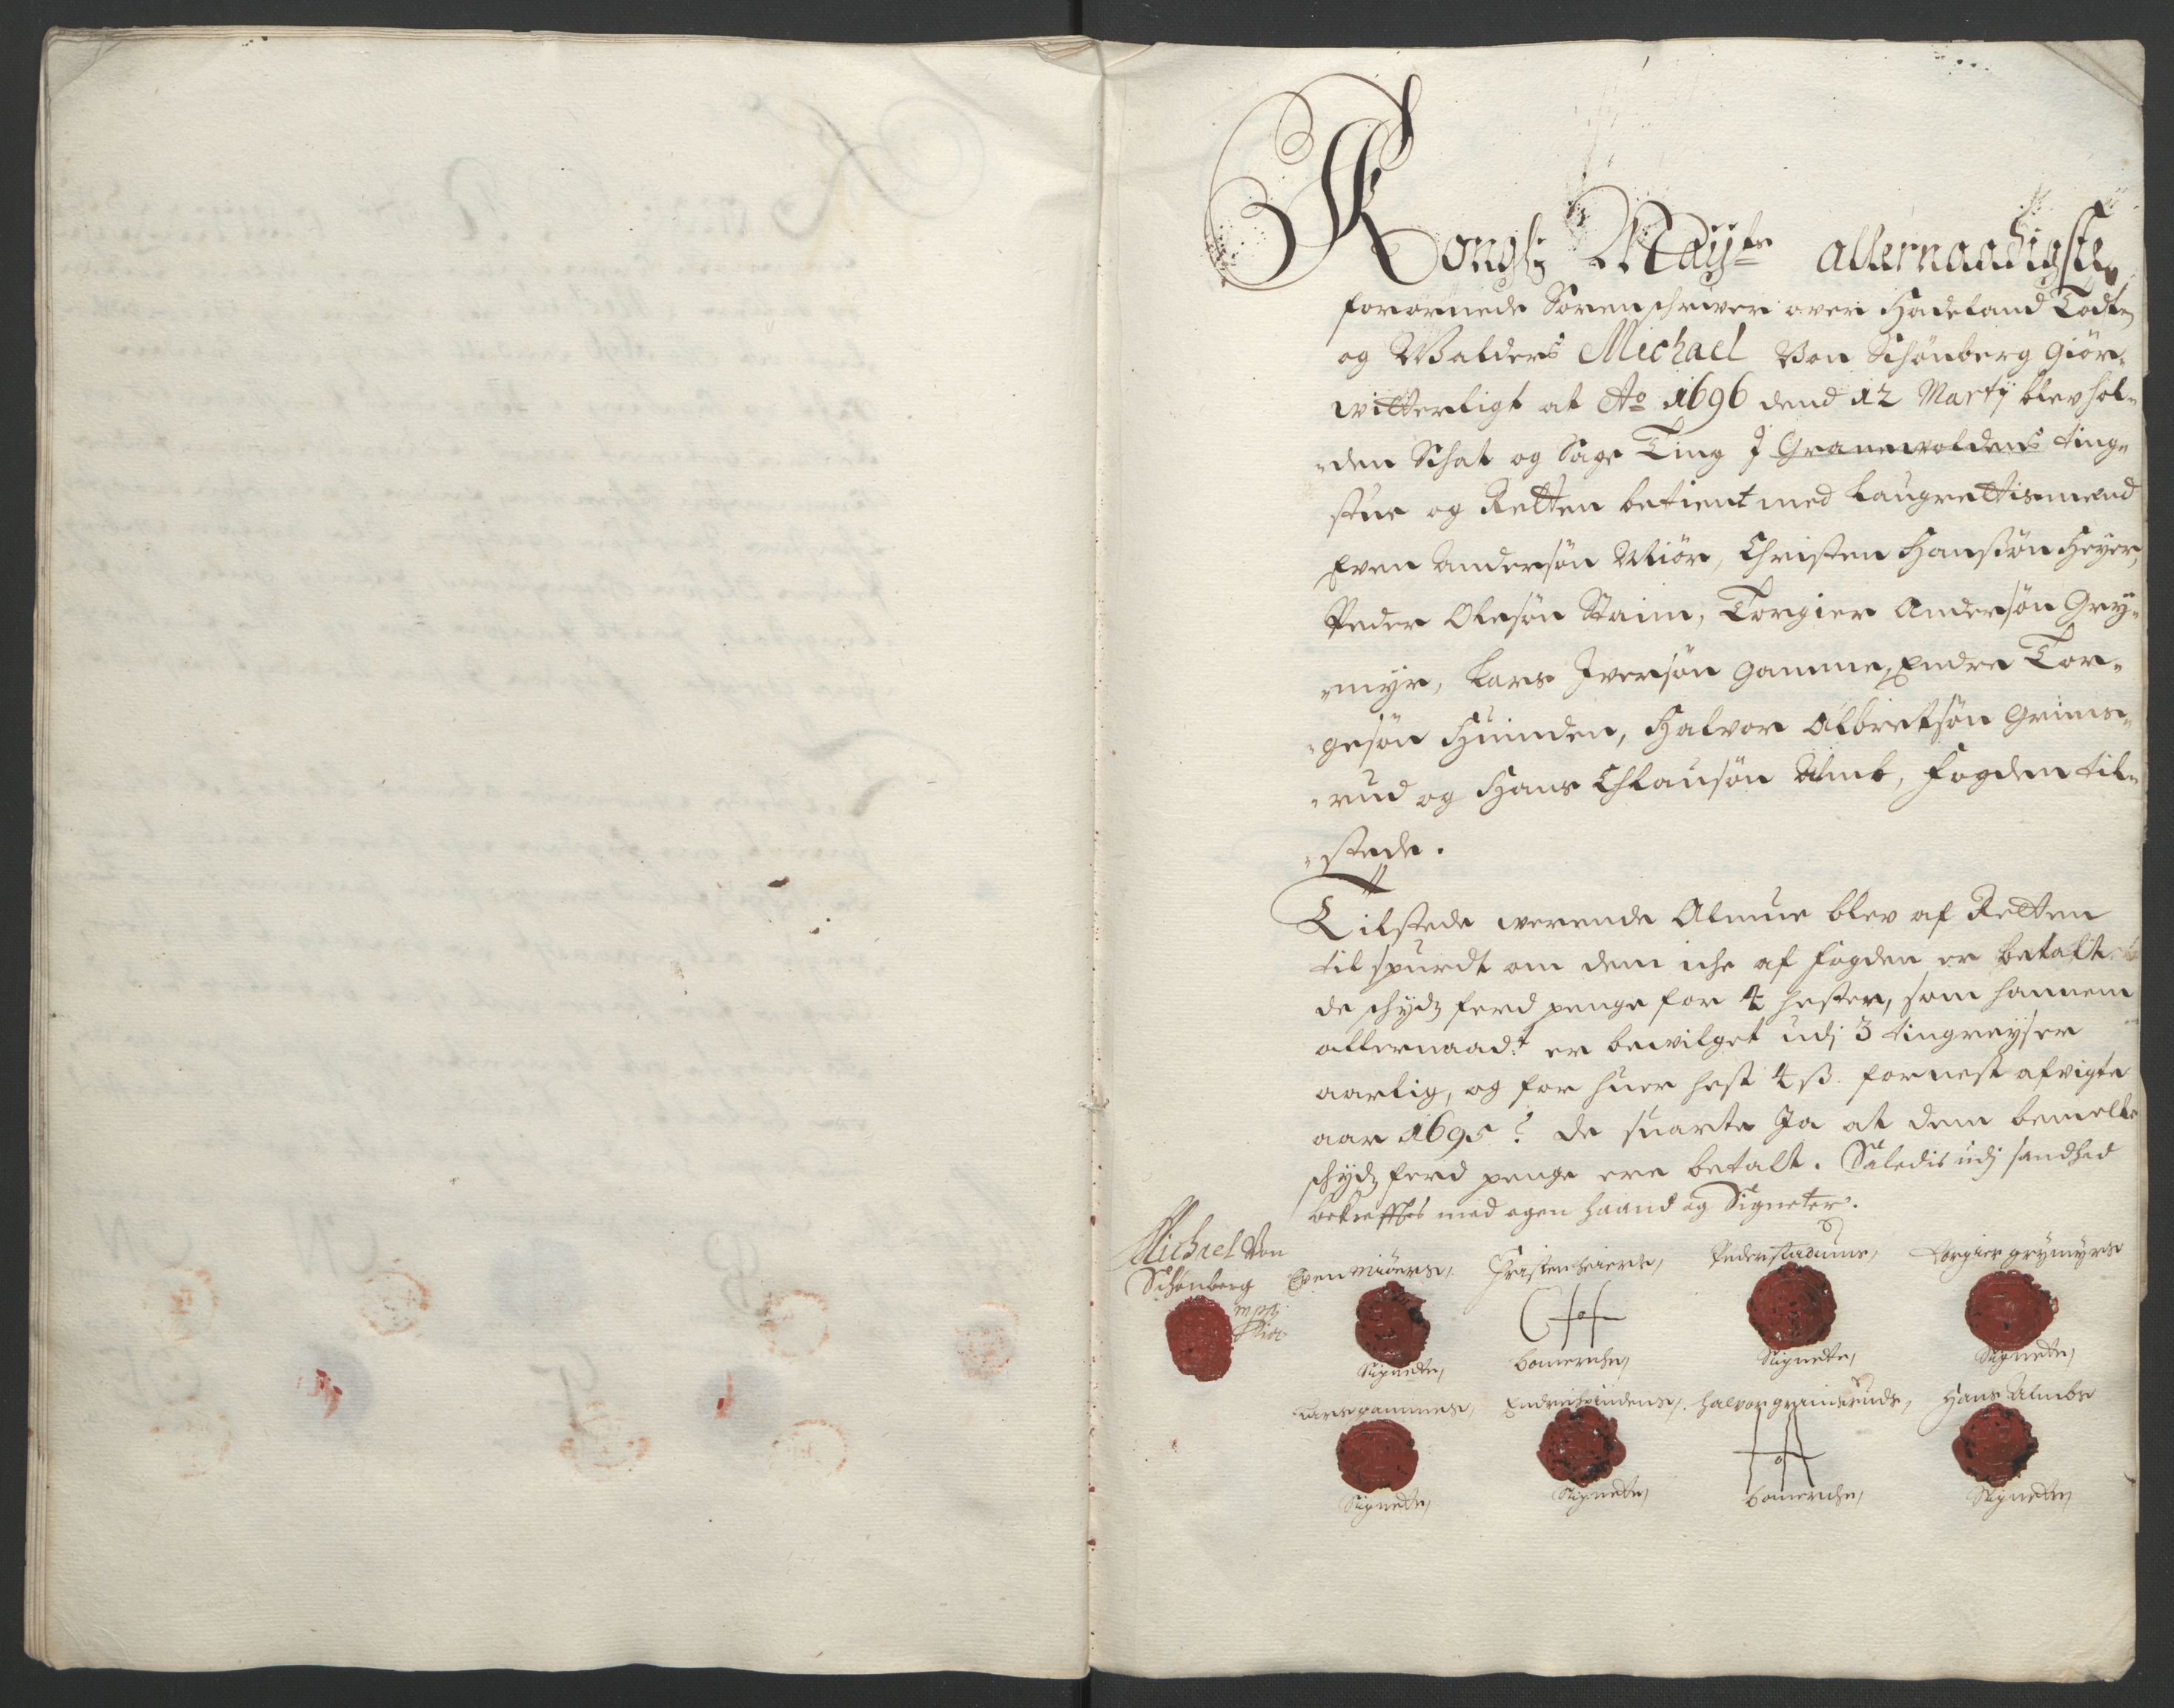 Kongl: Mayts allernaadigste
forornede Sorenschriver over Hadeland Todten
og Walders Michael Von Schönberg Giör
witterligt at Ao 1696 dend 12 Martij blev hol-
-den Schat og Sage Ting J Granevoldens ting-
stue og Retten betient med Laugrettismend
Even Andersön Miör, Christen Hanssön Heyer,
Peder Olesön Staim, Torgier Andersön Gry-
-myr, Lars Jversön Gamme, Endre Tor-
-gesön Huinden, Halvor Albretsön Grims-
-rud og Hans Chlausön Almb, fogden til-
-stede.
Tilstede werende Almue blev af Retten
tilspurdt om dem iche af fogden er betalt
de schydz ferd penge for 4 hester, som hannem
allernaadt er bevilget udj 3 tingreyser
aarlig, og for huer hest 4 ß. fornest afvigte
aar 1695? de suarte Ja at dem bemelte
schydz ferd penge ere betalt. Saledis udj sandhed
bekreffter med egen haand og Signeter.
Michael Von
Schönberg
mpp
Even Miörs, Christen Heiers, Peder Stadums, Torgier grymyrs
Signete, bomerche, Signete, Signete,
Lars gammes, Endre huindens, halvor grimsruds, Hans Almbs
Signete, Signete, bomerche, Signete,